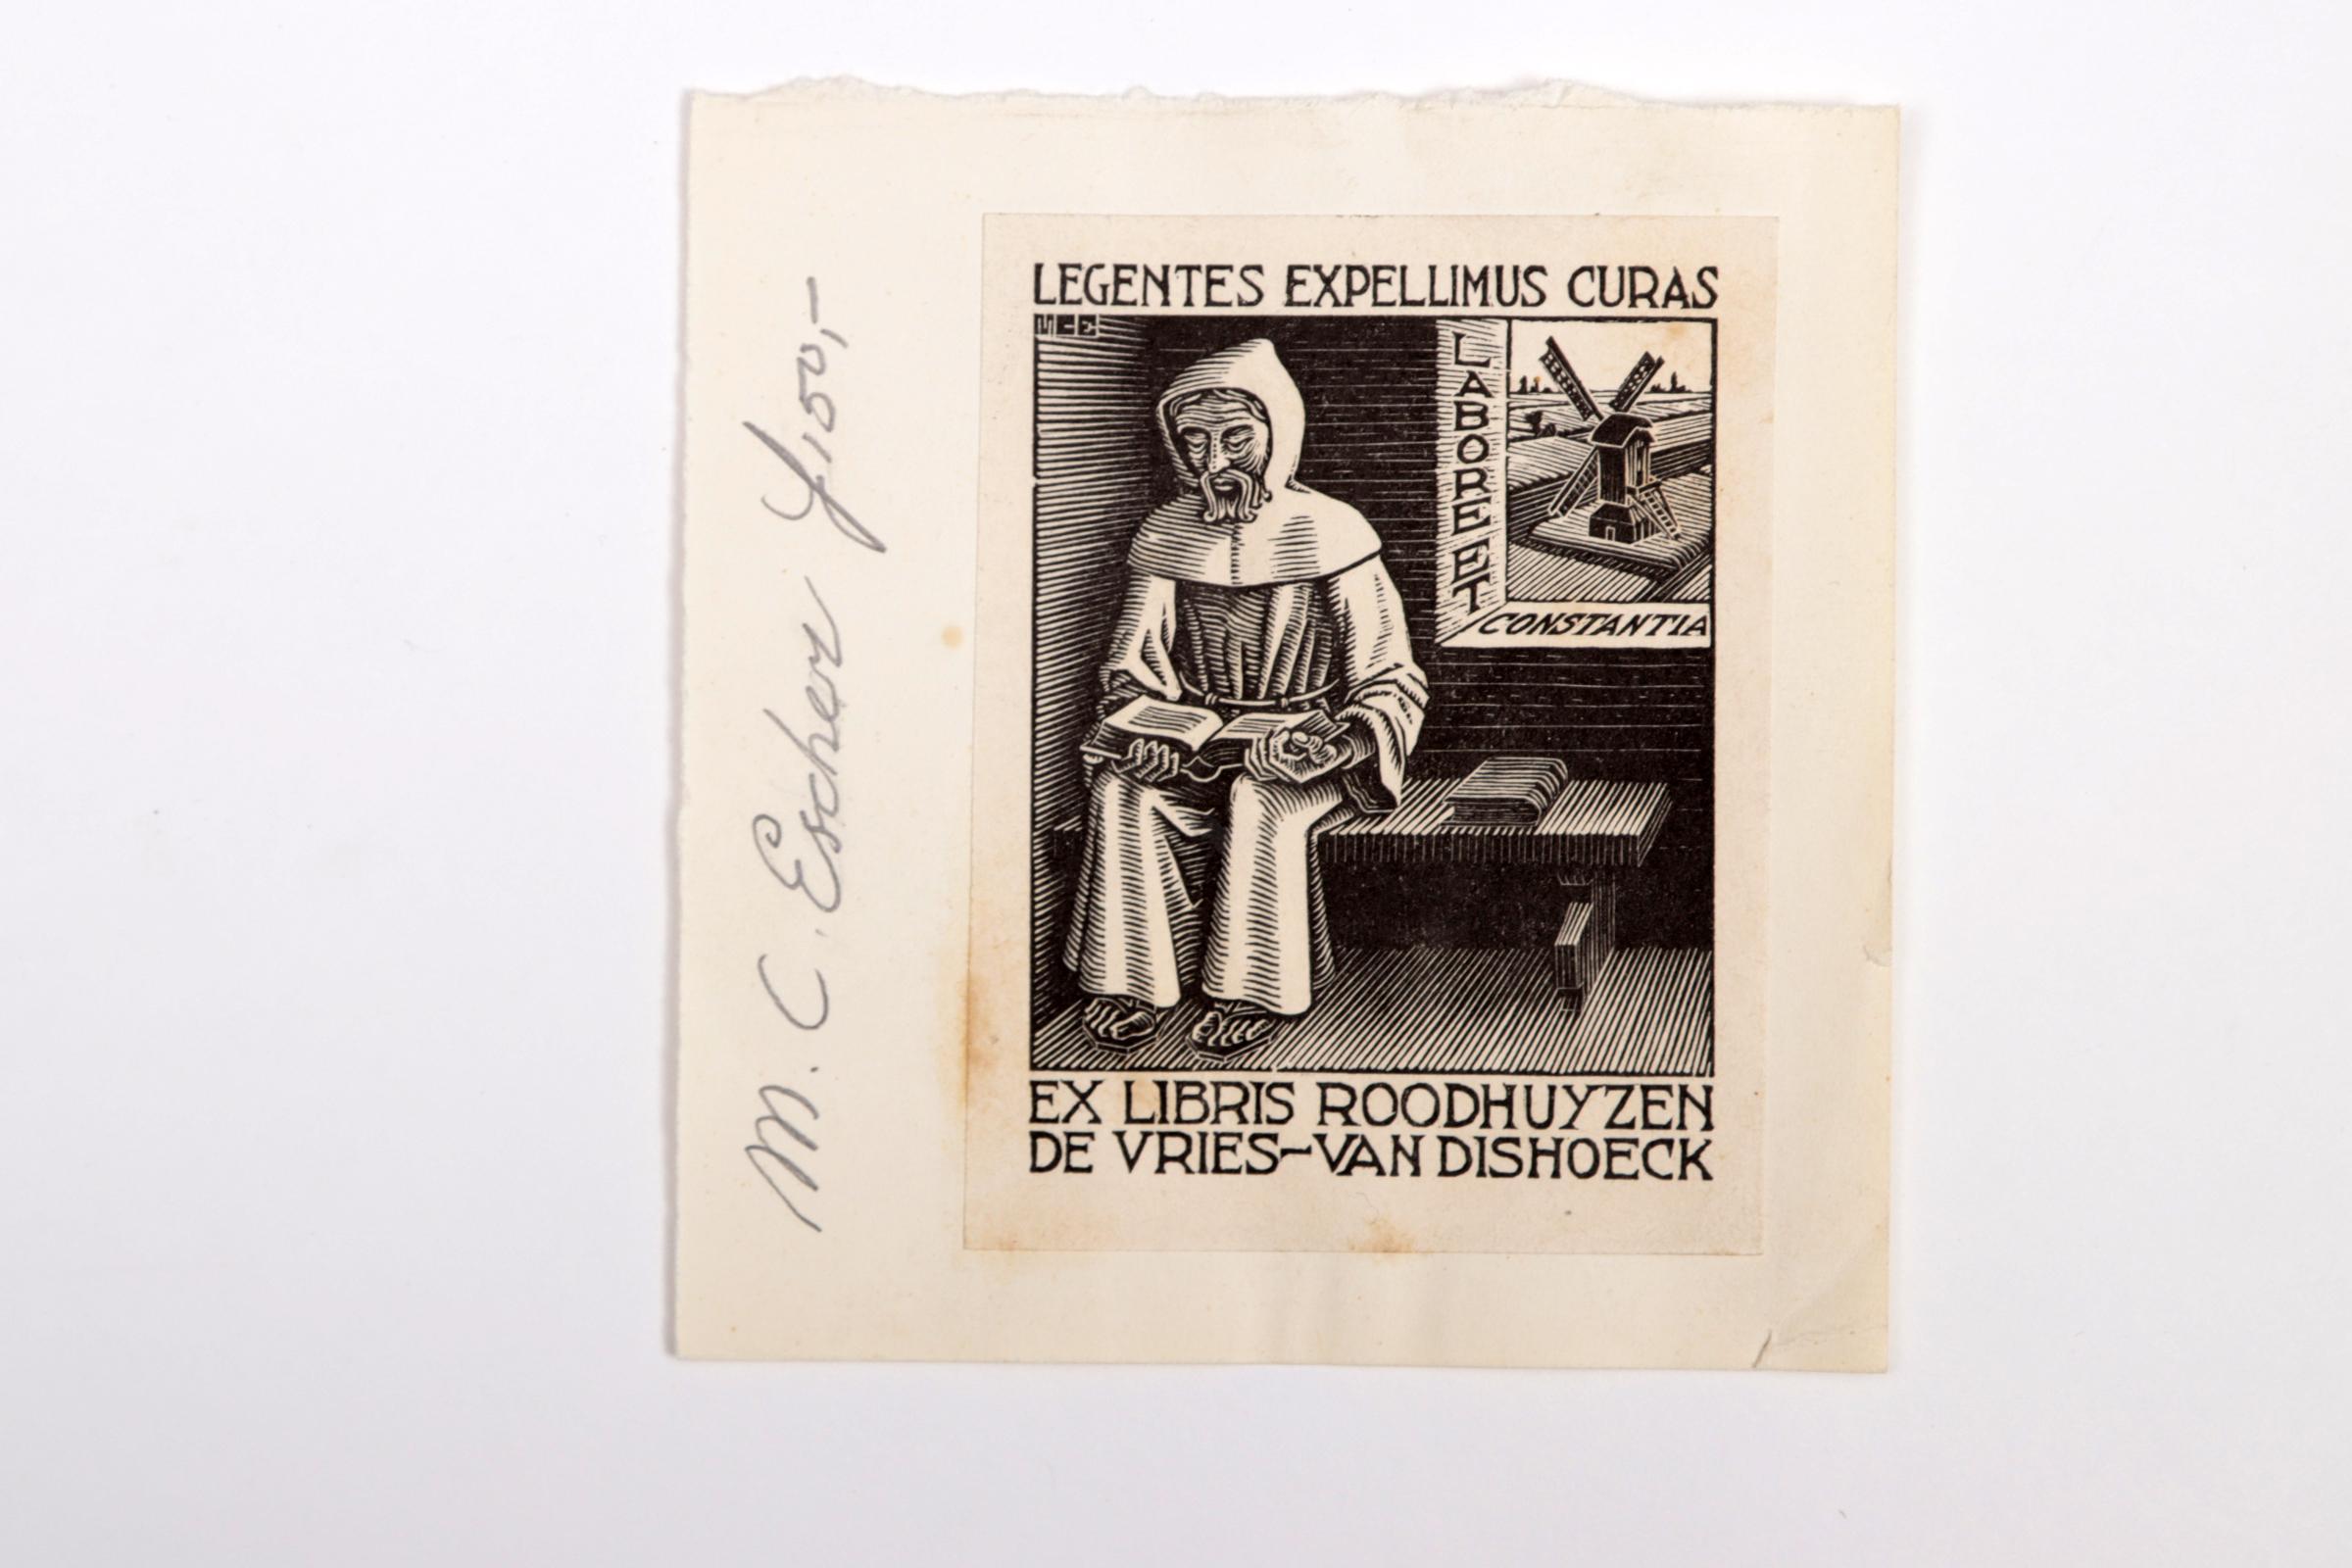 LEGENTES EXPELLIMUS CURAS
MCE
LABORE ET
CONSTANTIA
EX LIBRIS ROODHUYZEN
DE VRIES-VAN DISHOECK
M. C. Escher f 150,-